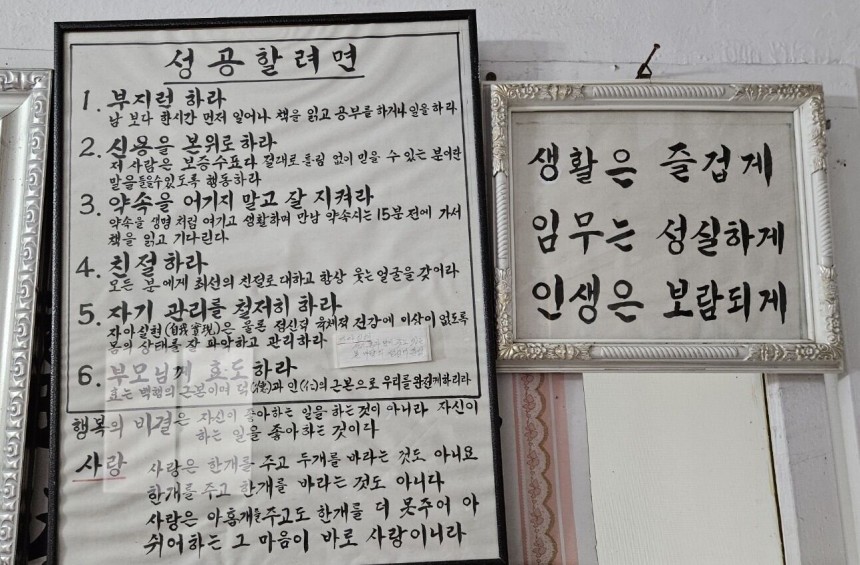 성공할려면
1. 부지런 하라
남 보다 한시간 먼저 일어나 책을 읽고 공부를 하거나 일을 하라
2. 신용을 본위로 하라
저 사람은 보증수표다 절대로 틀림 없이 믿을 수 있는 분이란
말을 들을수 있도록 행동하라
3. 약속을 어기지 말고 잘 지켜라
약속을 생명 처럼 여기고 생활하며 만남 약속시는 15분 전에 가서
책을 읽고 기다린다
4. 친절하라
모든 분에게 최선의 친절로 대하고 항상 웃는 얼굴을 갖어라
5. 자기 관리를 철저히 하라
자아실현(自我實現)은 물론 정신적 육체적 건강에 이상이 없도록
몸의 상태를 잘 파악하고 관리하라
6. 부모님께 효도하라
효는 백행의 근본이며 덕(德)과 인(仁)의 근본으로 우리를 완전케하리라
행복의 비결은 자신이 좋아하는 일을 하는것이 아니라 자신이
하는 일을 좋아하는 것이다
사랑
사랑은 한개를 주고 두개를 바라는 것도 아니요
한개를 주고 한개를 바라는 것도 아니다
사랑은 아홉개를 주고도 한개를 더 못주어 아
쉬어하는 그 마음이 바로 사랑이니라
생활은 즐겁게
임무는 성실하게
인생은 보람되게